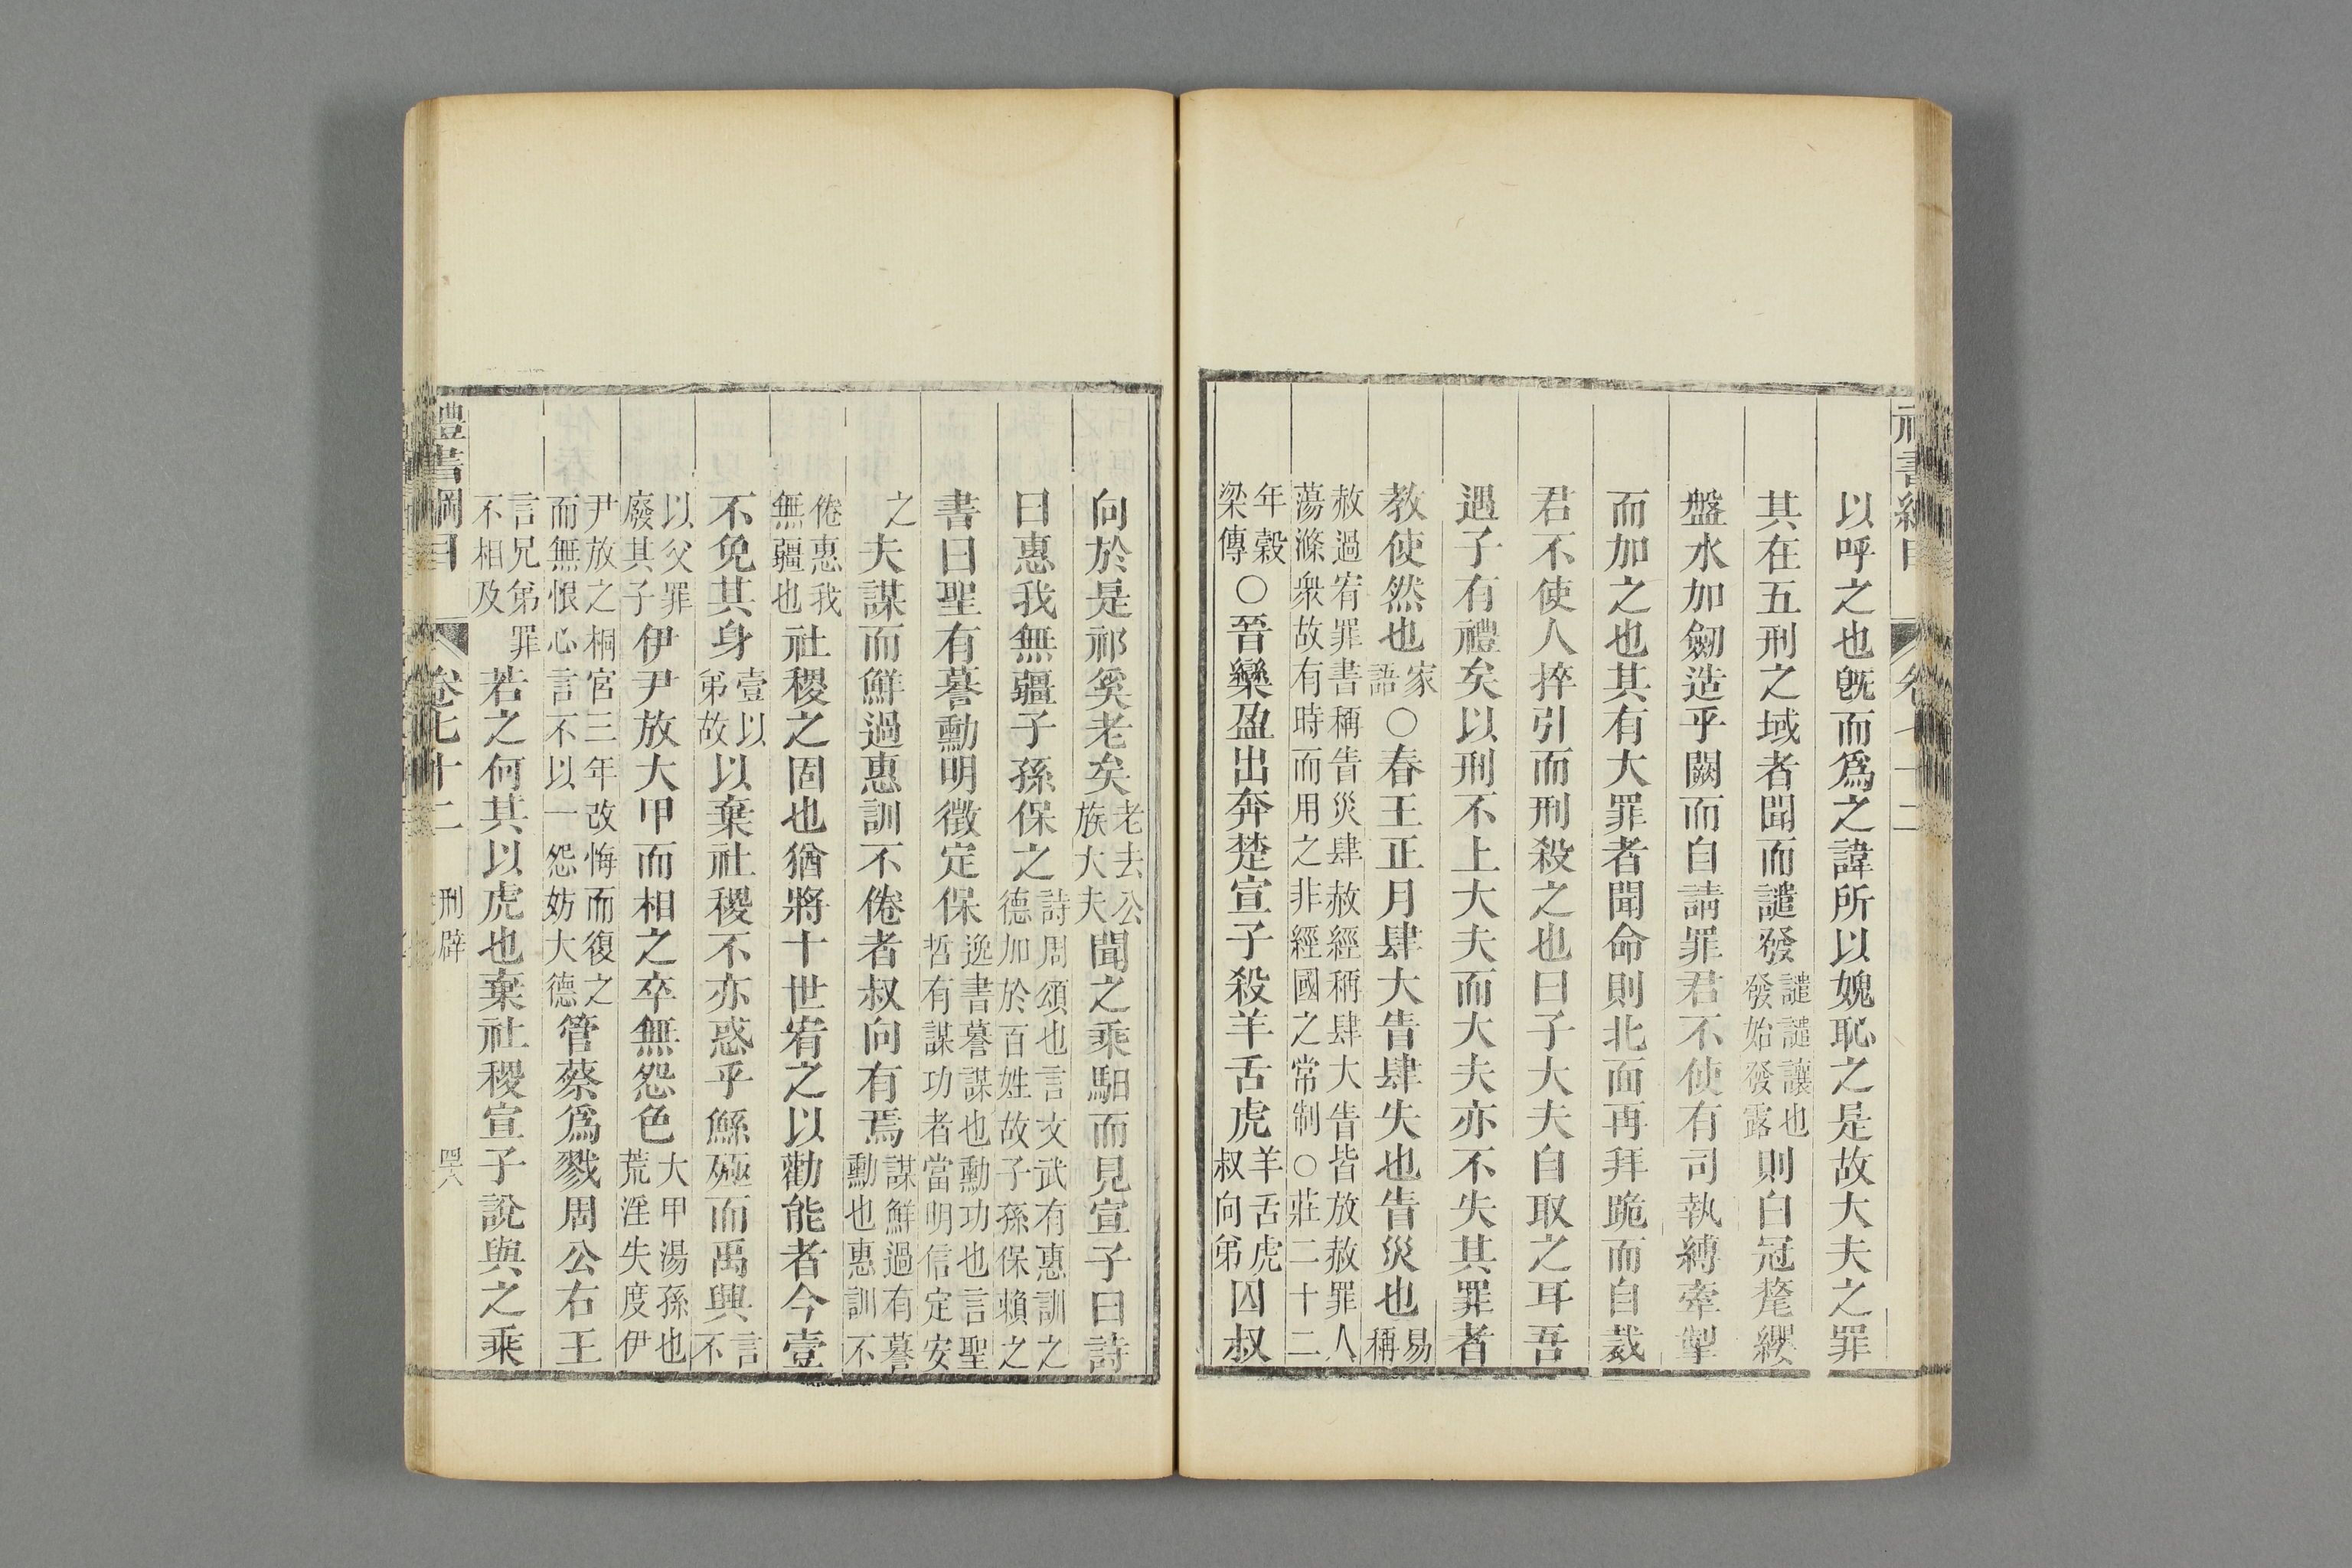 以呼之也旣而爲之諱所以媿恥之是故大夫之罪
其在五刑之域者聞而譴發譴譴讓也發始發露則白冠氂纓
盤水加劒造乎闕而自請罪君不使有司執縛牽掣
而加之也其有大罪者聞命則北面再拜跪而自裁
君不使人捽引而刑殺之也曰子大夫自取之耳吾
遇子有禮矣以刑不上大夫而大夫亦不失其罪者
教使然也家語○春王正月肆大眚肆失也眚災也易稱
赦過宥罪書稱眚災肆赦經稱肆大眚皆放赦罪人蕩滌衆故有時而用之非經國之常制○莊二十二
年穀梁傳○晉欒盈出奔楚宣子殺羊舌虎羊舌虎叔向弟囚叔
向於是祁奚老矣老去公族大夫聞之乘馹而見宣子曰詩
曰惠我無疆子孫保之詩周頌也言文武有惠訓之德加於百姓故子孫保賴之
書曰聖有謩勳明徵定保逸書謩謀也勳功也言聖哲有謀功者當明信定安
之夫謀而鮮過惠訓不倦者叔向有焉謀鮮過有謩勳也惠訓不
倦惠我無疆也社稷之固也猶將十世宥之以勸能者今壹
不免其身壹以弟故以棄社稷不亦惑乎鯀殛而禹興言不
以父罪廢其子伊尹放大甲而相之卒無怨色大甲湯孫也荒淫失度伊
尹放之桐宮三年改悔而復之而無恨心言不以一怨妨大德管蔡爲戮周公右王
言兄弟罪不相及若之何其以虎也棄社稷宣子說與之乘
禮書綱目 卷七十二 刑辟 四六